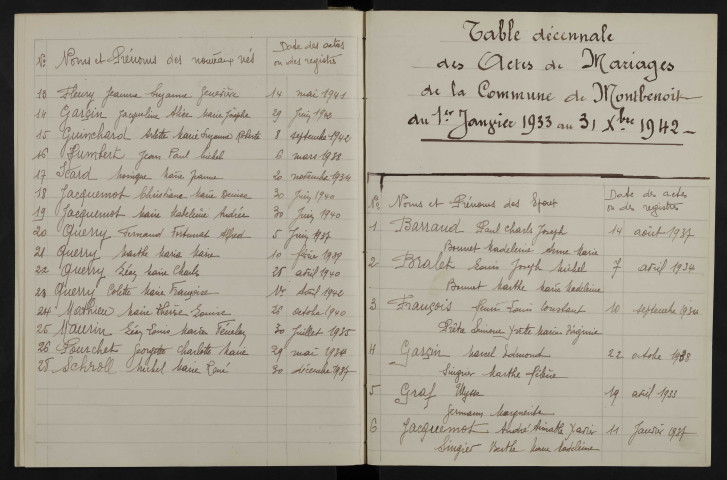 Nos Noms et Prénoms des nouveaux nés Date des actes ou des registres
13 Fleury Jeanne Suzanne Geneviève 14 mai 1941
14 Garçin Jacqueline Alice Marie Josèphe 29 Juin 1940
15 Guinchard Arlette Marie Suzanne 8 septembre 1942
16 Humbert Jean Paul Michel 6 mars 1938
17 Jeard Monique Marie Jeanne 20 novembre 1934
18 Jacquemot Christiane Marie Denise 30 Juin 1940
19 Jacquemot Marie Madeleine Andrée 30 Juin 1940
20 Querry Fernand Fortunat Alfred 5 Juin 1937
21 Querry Marthe Maria Marie 10 février 1939
22 Querry Léon Marie Charles 25 avril 1940
23 Querry Colette Marie Françoise avril 1942
24 Mathieu Marie Thérèse Louise 26 octobre 1940
25 Maurin Léon Louis Marie 30 Juillet 1935
26 Pourchet Georgette Charlotte Marie 29 mai 1934
28 Schroll Michel Marie René 30 décembre 1937
Table décennale
des Actes de Mariages
de la Commune de Montbenoit
du 1er Janvier 1933 au 31 Xbre 1942
Nos Noms et Prénoms des Epoux Date des actes ou des registres
1 Barraud Paul Charles Joseph 14 août 1937
Bonnet Madeleine Anne Marie
2 Bralet Louis Joseph Michel 7 avril 1934
Bonnet Marthe Marie Madeleine
3 François Henri Louis Constant 10 septembre 1934
Simone Yvette Marie Virginie
4 Garçin Marcel Edmond 22 octobre 1938
Singier Marthe Hélène
5 Graf Ulysse 19 avril 1933
Germann Marguerite
6 Jacquemot André Aimable Xavier 11 Janvier 1937
Singier Berthe Marie Madeleine